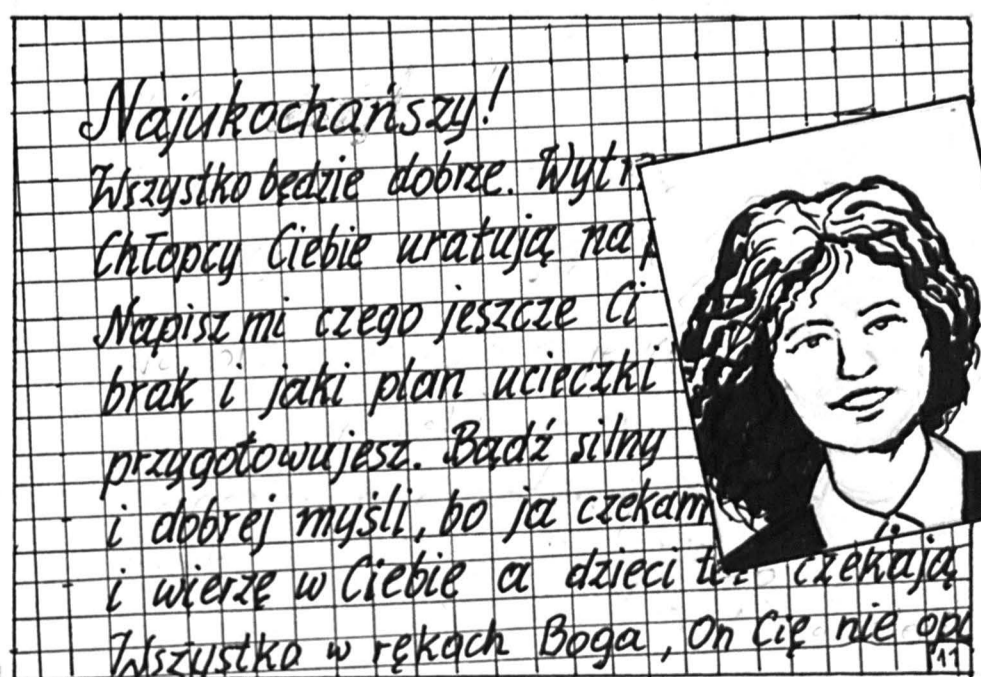 Najukochańszy!
Wszystko będzie dobrze.
Chłopcy Ciebie uratują
Napisz mi czego jeszcze Ci
brak i jaki plan ucieczki
przygotowujesz. Bądź silny
i dobrej myśli, bo ja czekam
i wierzę w Ciebie a dzieci też czekają
Wszystko w rękach Boga, On Cię nie
11